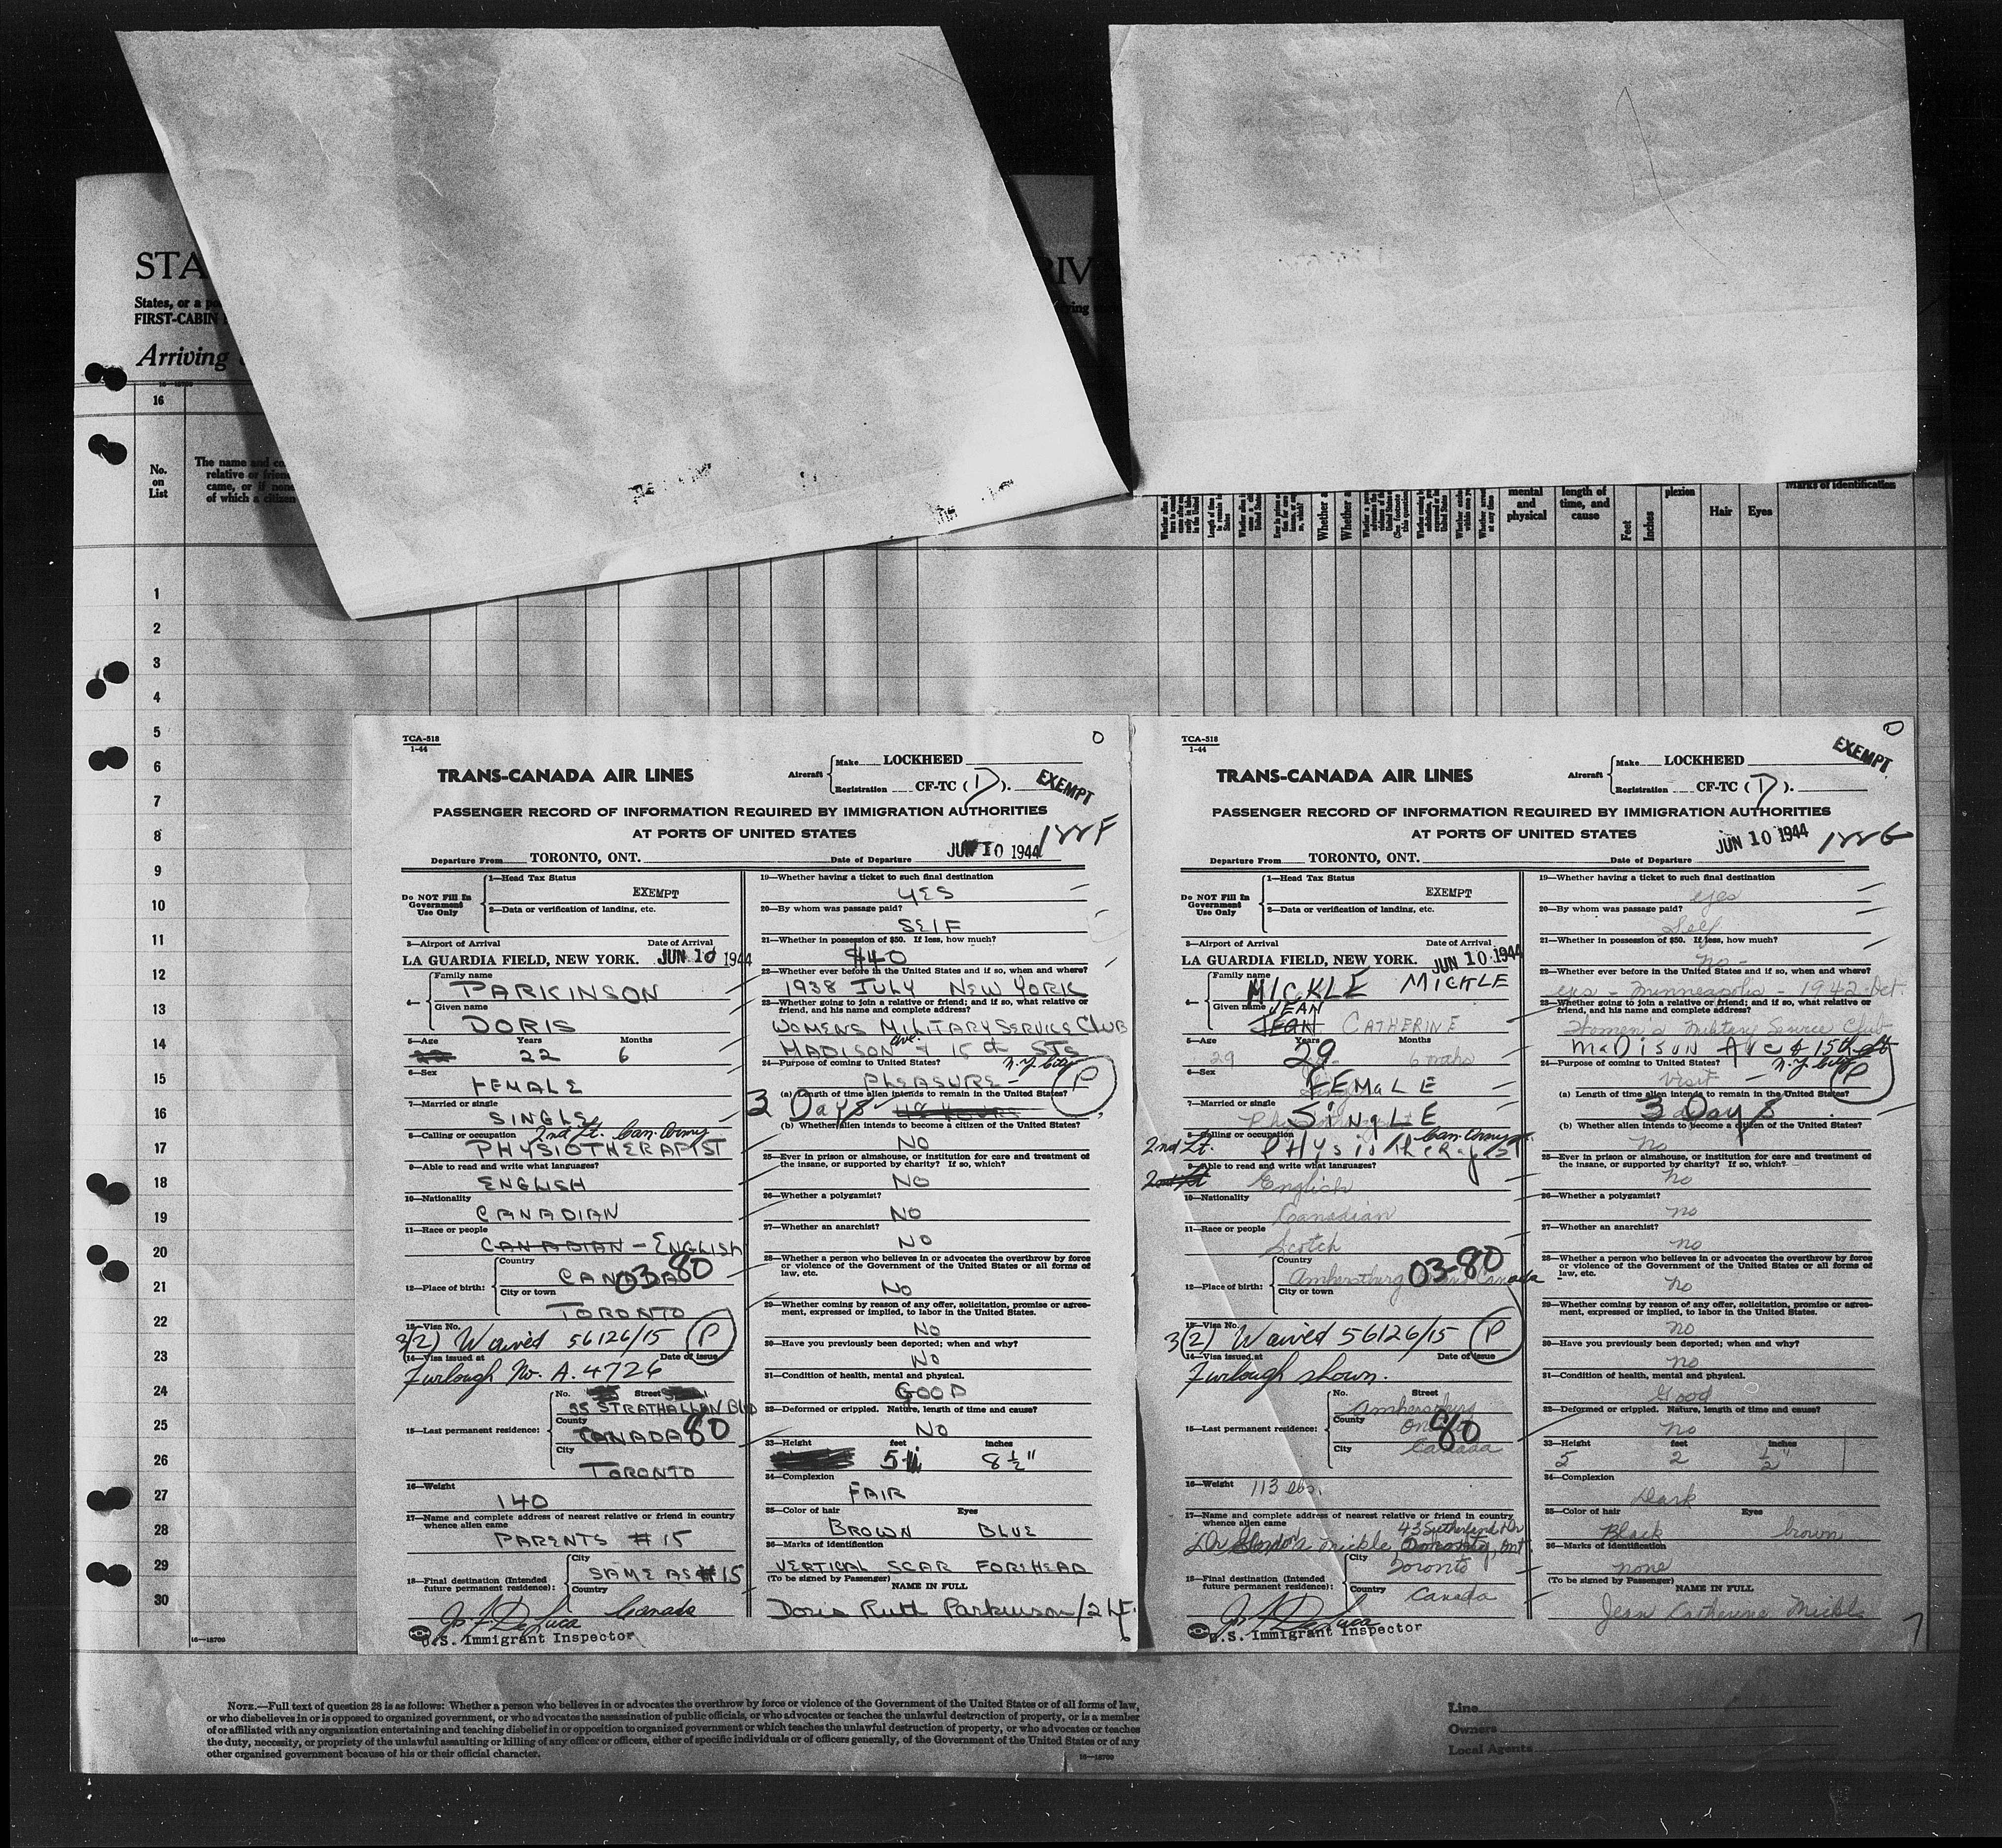 STA
RIV
States, or a po
FIRST-CABIN
Arriving
16
No.
on
List
The name and co
relative or friend
came, or if none
of which a citizen
mental
and
physical
length of
time, and
cause
Feet
Inches
plexion
Hair
Eyes
Marks of identification
1
2
3
4
5
6
7
8
9
10
11
12
13
14
15
16
17
18
19
20
21
22
23
24
25
26
27
28
29
30
16—18709
TCA-518
1-44
TRANS-CANADA AIR LINES
Aircraft Make LOCKHEED
Registration CF-TC (D).
EXEMPT
PASSENGER RECORD OF INFORMATION REQUIRED BY IMMIGRATION AUTHORITIES
AT PORTS OF UNITED STATES
188F
Departure From TORONTO, ONT. Date of Departure JUN 10 1944
Do NOT Fill In
Government
Use Only
1—Head Tax Status
EXEMPT
2—Data or verification of landing, etc.
3—Airport of Arrival Date of Arrival
LA GUARDIA FIELD, NEW YORK. JUN 10 1944
4— Family name
PARKINSON
Given name
DORIS
5—Age Years Months
22 6
6—Sex
FEMALE
7—Married or single
SINGLE
8—Calling or occupation 2nd Lt. Can. Army
PHYSIOTHERAPIST
9—Able to read and write what languages?
ENGLISH
10—Nationality
CANADIAN
11—Race or people
CANADIAN - ENGLISH
12—Place of birth: Country
CANADA 03-80
City or town
TORONTO
13—Visa No.
3(2) Waived 56126/15 (P)
14—Visa issued at Date of issue
Furlough No. A. 4726
15—Last permanent residence: No. Street
55 STRATHALLAN BLVD
County
CANADA 80
City
TORONTO
16—Weight
140
17—Name and complete address of nearest relative or friend in country
whence alien came
PARENTS # 15
18—Final destination (Intended
future permanent residence):
City
SAME AS # 15
Country
Canada
U.S. Immigrant Inspector
19—Whether having a ticket to such final destination
YES
20—By whom was passage paid?
SELF
21—Whether in possession of $50. If less, how much?
$40
22—Whether ever before in the United States and if so, when and where?
1938 JULY NEW YORK
23—Whether going to join a relative or friend; and if so, what relative or
friend, and his name and complete address?
WOMENS MILITARY SERVICE CLUB
MADISON Ave. & 15th STS
24—Purpose of coming to United States? N.Y. City
PLEASURE - (P)
(a) Length of time alien intends to remain in the United States?
3 Days 48 HOURS
(b) Whether alien intends to become a citizen of the United States?
NO
25—Ever in prison or almshouse, or institution for care and treatment of
the insane, or supported by charity? If so, which?
NO
26—Whether a polygamist?
NO
27—Whether an anarchist?
NO
28—Whether a person who believes in or advocates the overthrow by force
or violence of the Government of the United States or all forms of
law, etc.
NO
29—Whether coming by reason of any offer, solicitation, promise or agree-
ment, expressed or implied, to labor in the United States.
NO
30—Have you previously been deported; when and why?
NO
31—Condition of health, mental and physical.
GOOD
32—Deformed or crippled. Nature, length of time and cause?
NO
33—Height feet inches
5 8½"
34—Complexion
FAIR
35—Color of hair Eyes
BROWN BLUE
36—Marks of identification
VERTICAL SCAR FOREHEAD
(To be signed by Passenger) NAME IN FULL
Doris Ruth Parkinson /2 Lt.
TCA-518
1-44
TRANS-CANADA AIR LINES
Aircraft Make LOCKHEED
Registration CF-TC (D).
EXEMPT
PASSENGER RECORD OF INFORMATION REQUIRED BY IMMIGRATION AUTHORITIES
AT PORTS OF UNITED STATES
188G
Departure From TORONTO, ONT. Date of Departure JUN 10 1944
Do NOT Fill In
Government
Use Only
1—Head Tax Status
EXEMPT
2—Data or verification of landing, etc.
3—Airport of Arrival Date of Arrival
LA GUARDIA FIELD, NEW YORK. JUN 10 1944
4— Family name
MICKLE MICKLE
Given name
JEAN
JEAN CATHERINE
5—Age Years Months
29 29 6 mths
6—Sex
FEMALE
7—Married or single
SINGLE
8—Calling or occupation Can. Army
2nd Lt. PHysiotheRapist
9—Able to read and write what languages?
2nd Lt English
10—Nationality
Canadian
11—Race or people
Scotch
12—Place of birth: Country
Amherstburg 03-80 Canada
City or town
13—Visa No.
3(2) Waived 56126/15 (P)
14—Visa issued at Date of issue
Furlough shown.
15—Last permanent residence: No. Street
Amherstburg
County
Ont 80
City
Canada
16—Weight 113 lbs.
17—Name and complete address of nearest relative or friend in country
whence alien came 43 Sutherland Dr
Dr Gordon Mickle Ont
18—Final destination (Intended
future permanent residence):
City
Toronto
Country
Canada
U.S. Immigrant Inspector
19—Whether having a ticket to such final destination
yes
20—By whom was passage paid?
Self
21—Whether in possession of $50. If less, how much?
no -
22—Whether ever before in the United States and if so, when and where?
yes - Minneapolis - 1942 - Oct.
23—Whether going to join a relative or friend; and if so, what relative or
friend, and his name and complete address?
Women's Military Service Club
MaDison Ave & 15th St
24—Purpose of coming to United States? N.Y. City
Visit - (P)
(a) Length of time alien intends to remain in the United States?
3 Days
(b) Whether alien intends to become a citizen of the United States?
No
25—Ever in prison or almshouse, or institution for care and treatment of
the insane, or supported by charity? If so, which?
no
26—Whether a polygamist?
no
27—Whether an anarchist?
no
28—Whether a person who believes in or advocates the overthrow by force
or violence of the Government of the United States or all forms of
law, etc.
no
29—Whether coming by reason of any offer, solicitation, promise or agree-
ment, expressed or implied, to labor in the United States.
no
30—Have you previously been deported; when and why?
no
31—Condition of health, mental and physical.
Good
32—Deformed or crippled. Nature, length of time and cause?
no
33—Height feet inches
5 2 ½"
34—Complexion
Dark
35—Color of hair Eyes
Black brown
36—Marks of identification
none
(To be signed by Passenger) NAME IN FULL
Jean Catherine Mickle
NOTE.—Full text of question 28 is as follows: Whether a person who believes in or advocates the overthrow by force or violence of the Government of the United States or of all forms of law,
or who disbelieves in or is opposed to organized government, or who advocates the assassination of public officials, or who advocates or teaches the unlawful destruction of property, or is a member
of or affiliated with any organization entertaining and teaching disbelief in or opposition to organized government or which teaches the unlawful destruction of property, or who advocates or teaches
the duty, necessity, or propriety of the unlawful assaulting or killing of any officer or officers, either of specific individuals or of officers generally, of the Government of the United States or of any
other organized government because of his or their official character.
16—18709
Line
Owners
Local Agents